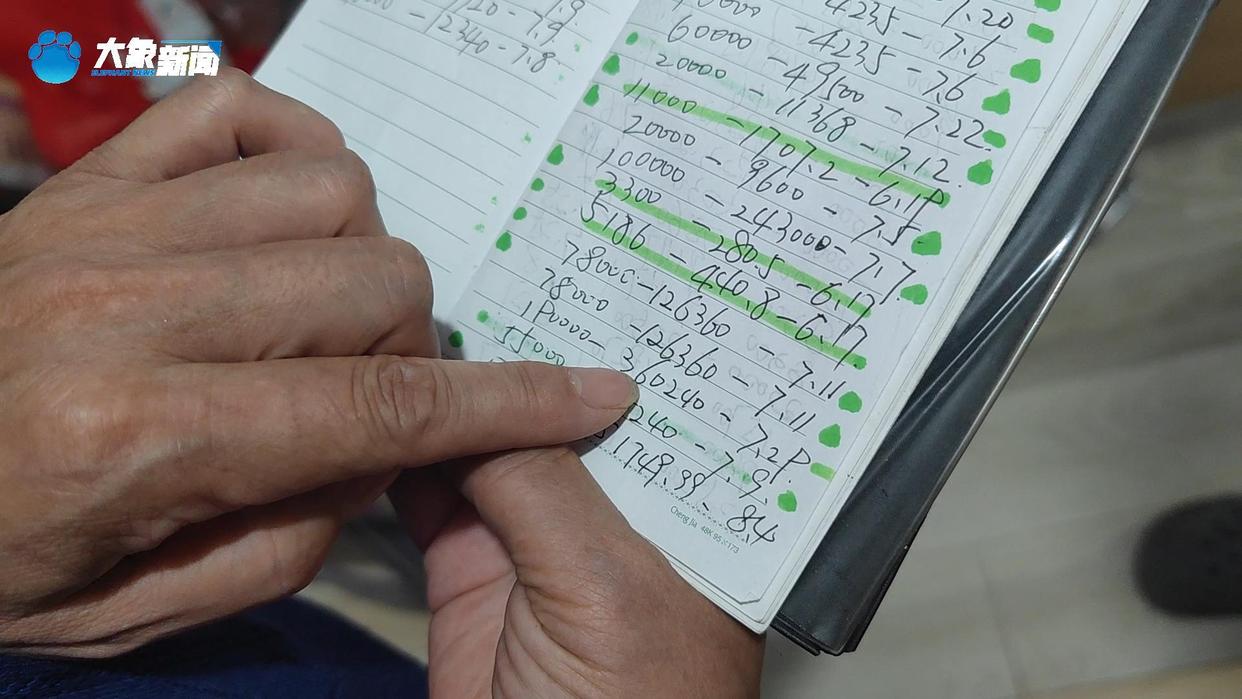 大象新闻
ELEPHANT NEWS
12340 - 7.8
4235 - 7.6
60000 - 4235 - 7.6
20000 - 49500 - 7.22
11000 - 11368 - 7.12
20000 - 1707.2 - 6.17
100000 - 9600 - 7.5
3300 - 243000 - 7.7
5186 - 280.5 - 6.17
78000 - 440.8 - 6.17
78000 - 126360 - 7.11
1P0000 - 126360 - 7.11
55000 360240 - 7.2P
240 - 7.9
1749.99 - 8.4
Cheng Jia 48K 95×173